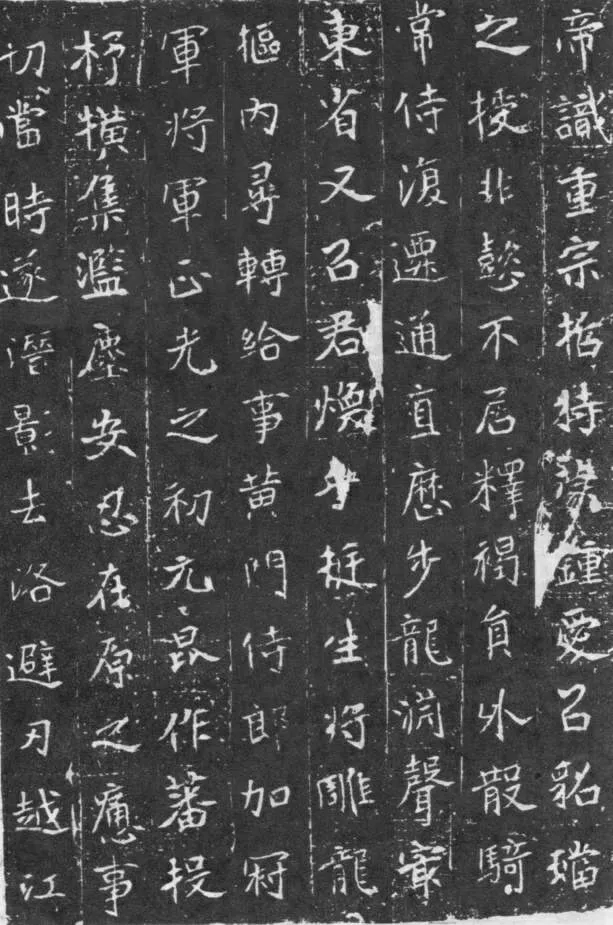 帝識重宗哲特隆鍾愛召貂璫
之授非懿不居釋褐員外散騎
常侍復遷通直歷步龍淵聲實
東省又召君煥挺生將雕龍
樞內尋轉給事黃門侍郎加冠
軍將軍正光之初元昆作蕃投
杼橫集濫塵安忍在原之慟事
切當時遂潛影去洛避刃越江